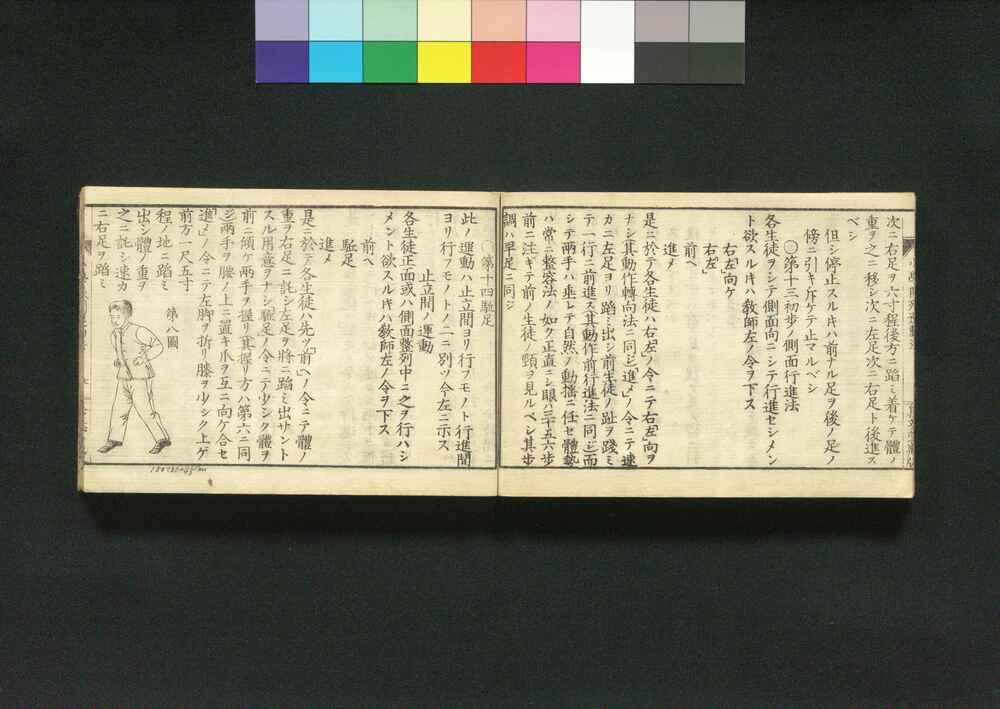 次ニ右足ヲ六寸程後方ニ蹈ミ着ケテ體ノ
重ヲ之ニ移シ次ニ左足次ニ右足ト後進ス
ベシ
但シ停止スルキハ前ナル足ヲ後ノ足ノ
傍ニ引キ斥ケテ止マルベシ
〇第十三初歩ノ側面行進法
各生徒ヲシテ側面向ニシテ行進セシメン
ト欲スルキハ教師左ノ令ヲ下ス
右左向ケ
右左
前ヘ
進メ
是ニ於テ各生徒ハ右左ノ令ニテ右左向ヲ
ナシ其動作轉向法ニ同ジ進メノ令ニテ速
カニ左足ヨリ蹈ミ出シ前生徒ノ趾ヲ踐ミ
テ一行ニ前進ス其動作前行進法ニ同ジ而
シテ両手ハ垂レテ自然ノ動搖ニ任セ體勢
ハ常ニ整容法ノ如ク正直ニシ眼ハ三十五六歩
前ニ注ギテ前ノ生徒ノ頸ヲ見ルベシ其歩
調ハ早足ニ同ジ
〇第十四駈足
此ノ運動ハ止立間ヨリ行フモノト行進間
ヨリ行フモノトノ二ニ別ツ今左ニ示ス
止立間ノ運動
各生徒正面或ハ側面整列中ニ之ヲ行ハシ
メント欲スルキハ教師左ノ令ヲ下ス
前ヘ
駈足
進メ
是ニ於テ各生徒ハ先ヅ前ヘノ令ニテ體ノ
重ヲ右足ニ託シ左足ヲ將ニ蹈ミ出サント
スル用意ヲナシ駈足ノ令ニテ少シク體ヲ
前ニ傾ケ両手ヲ握リ其握リ方ハ第六ニ同
ジ両手ヲ腰ノ上ニ置キ爪ヲ互ニ向ケ合セ
進メノ令ニテ左脚ヲ折リ膝ヲ少シク上ゲ
前方一尺五寸
程ノ地ニ蹈ミ
出シ體ノ重ヲ
之ニ託シ速カ
ニ右足ヲ蹈ミ
第八圖